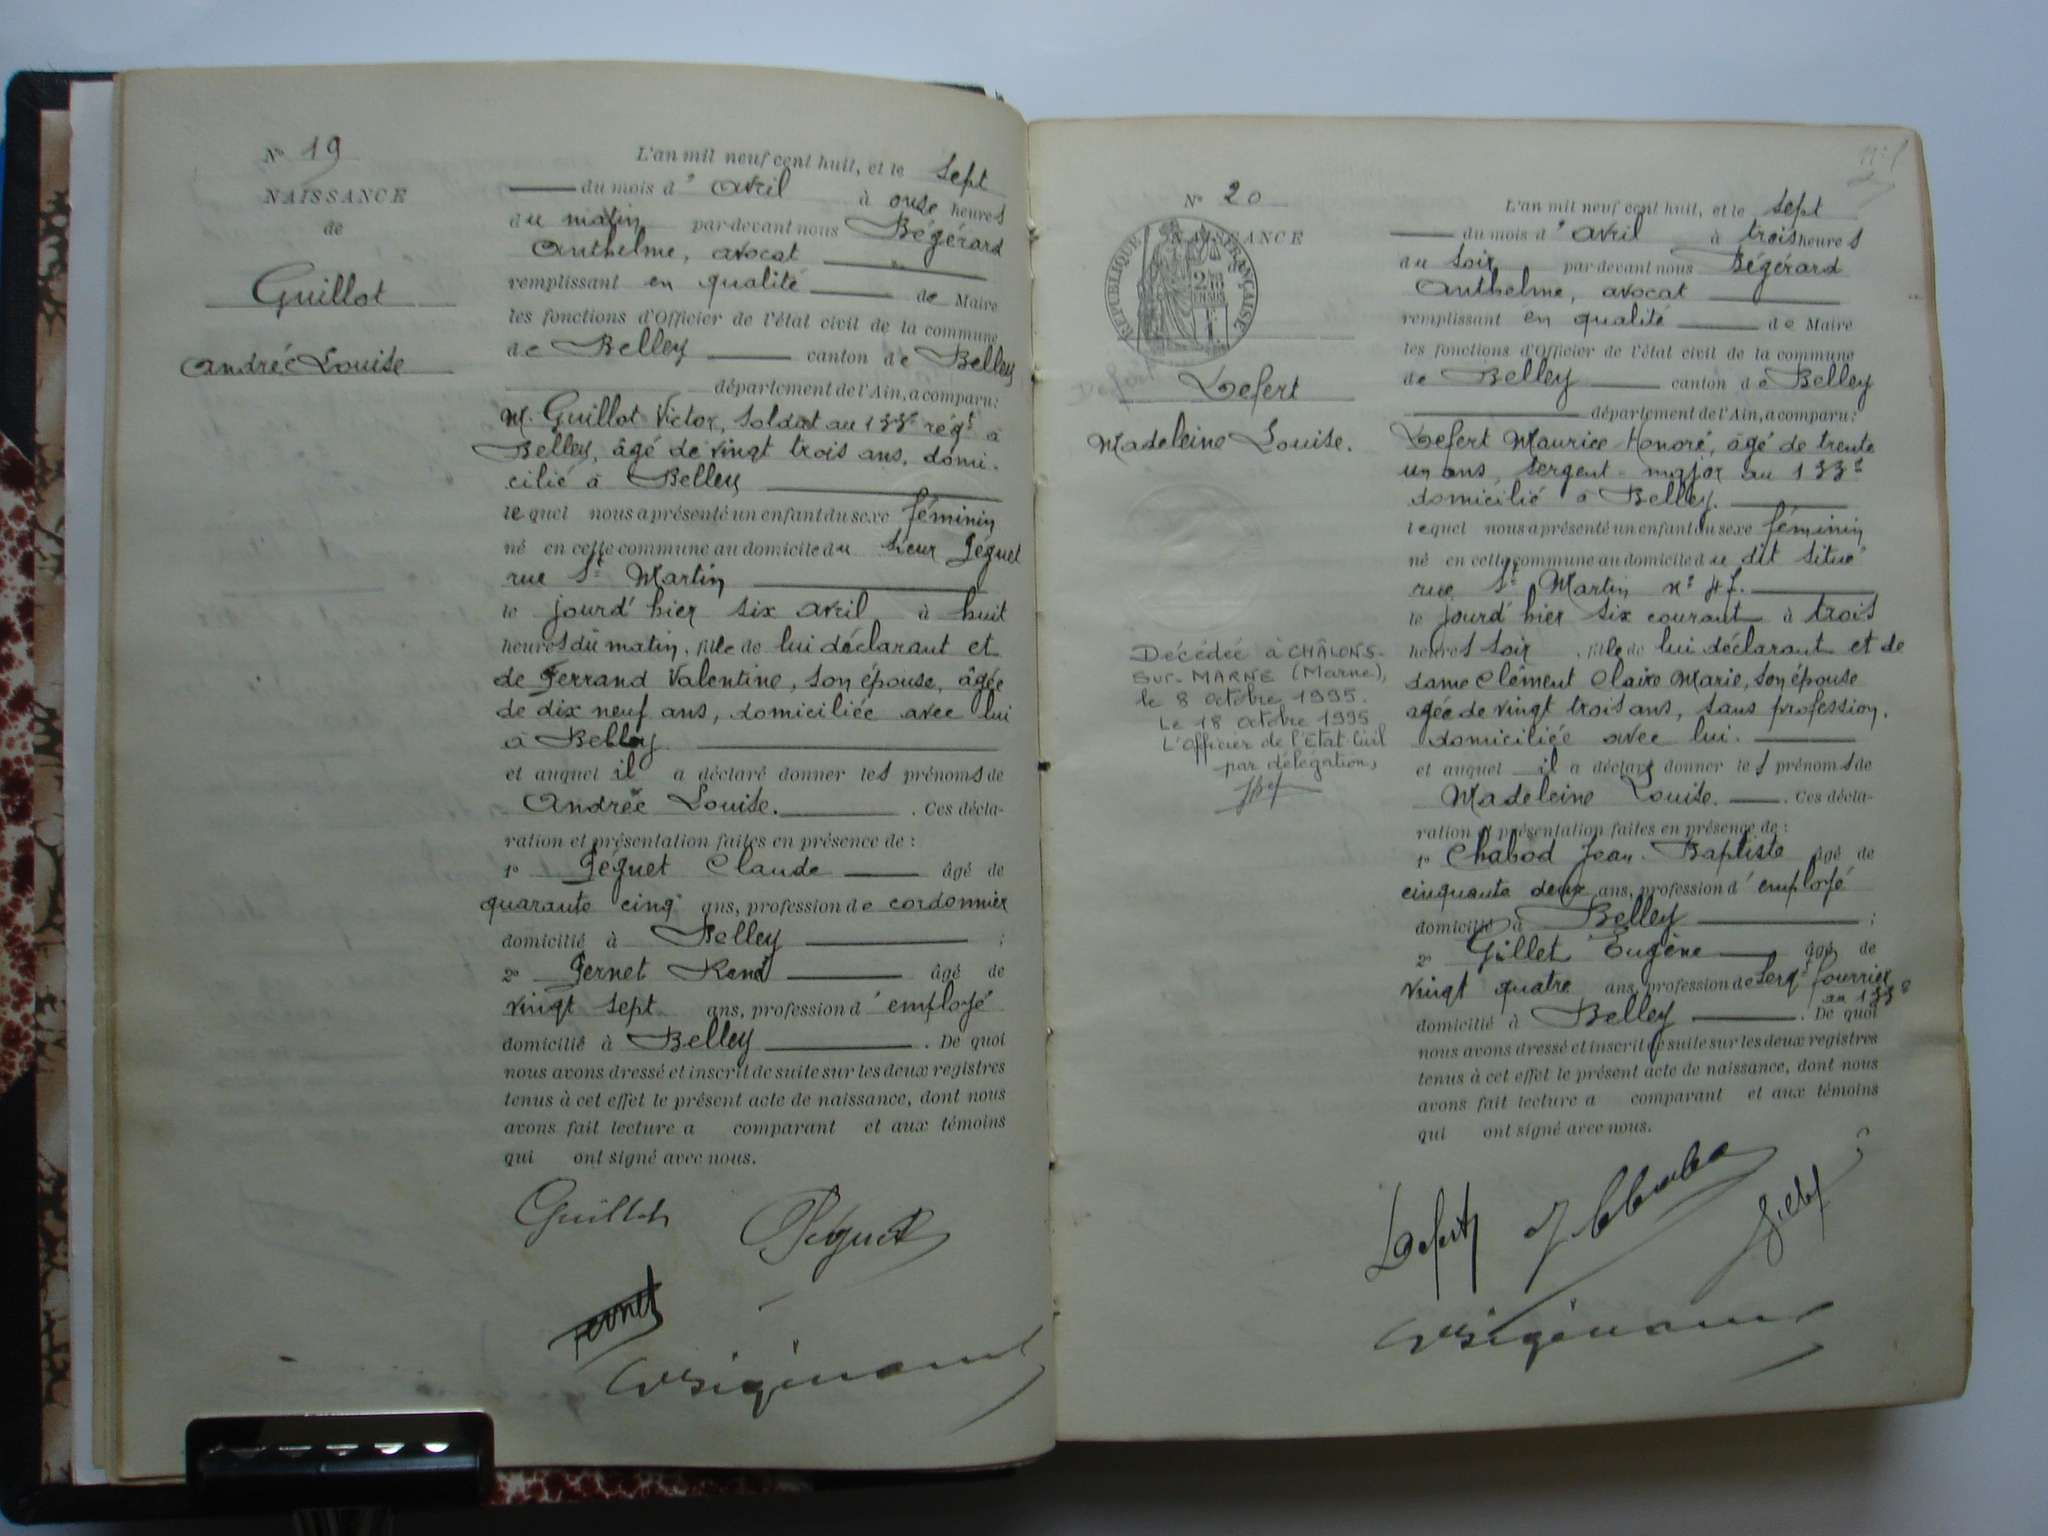 N° 19
NAISSANCE
de
Guillot
Andrée Louise
L'an mil neuf cent huit, et le sept
du mois d'avril à onze heures
du matin par devant nous Bégérard
Anthelme, avocat
remplissant en qualité de Maire
les fonctions d'Officier de l'état civil de la commune
de Belley canton de Belley
département de l'Ain, a comparu:
M. Guillot Victor, soldat au 133e régt à
Belley, âgé de vingt trois ans, domi-
cilié à Belley
lequel nous a présenté un enfant du sexe féminin
né en cette commune au domicile du sieur Péguet
rue St Martin
le jourd'hier six avril à huit
heures du matin, fille de lui déclarant et
de Ferrand Valentine, son épouse, âgée
de dix neuf ans, domiciliée avec lui
à Belley
et auquel il a déclaré donner les prénoms de
Andrée Louise. . Ces décla-
ration et présentation faites en présence de :
1° Péguet Claude âgé de
quarante cinq ans, profession de cordonnier
domicilié à Belley ;
2° Pernet René âgé de
vingt sept ans, profession d'employé
domicilié à Belley . De quoi
nous avons dressé et inscrit de suite sur les deux registres
tenus à cet effet le présent acte de naissance, dont nous
avons fait lecture a comparant et aux témoins
qui ont signé avec nous.
Guillot Péguet
Pernet
N° 20
NAISSANCE
RÉPUBLIQUE FRANÇAISE
Lefert
Madeleine Louise.
Décédée à CHÂLONS-
SUR-MARNE (Marne),
le 8 octobre 1995.
Le 18 octobre 1995
L'officier de l'Etat Civil
par délégation,
L'an mil neuf cent huit, et le sept
du mois d'avril à trois heures
du soir par devant nous Bégérard
Anthelme, avocat
remplissant en qualité de Maire
les fonctions d'Officier de l'état civil de la commune
de Belley canton de Belley
département de l'Ain, a comparu:
Lefert Maurice Honoré, âgé de trente
un ans, sergent-major au 133e
domicilié à Belley.
lequel nous a présenté un enfant du sexe féminin
né en cette commune au domicile du dit situé
rue St Martin n°
le jourd'hier six courant à trois
heures soir, fille de lui déclarant et de
dame Clément Claire Marie, son épouse
âgée de vingt trois ans, sans profession,
domiciliée avec lui.
et auquel il a déclaré donner les prénoms de
Madeleine Louise. . Ces décla-
ration et présentation faites en présence de :
1° Chabod Jean-Baptiste âgé de
cinquante deux ans, profession d'employé
domicilié à Belley ;
2° Gillet Eugène âgé de
vingt quatre ans, profession de sergt fourrier
au 133e
domicilié à Belley . De quoi
nous avons dressé et inscrit de suite sur les deux registres
tenus à cet effet le présent acte de naissance, dont nous
avons fait lecture a comparant et aux témoins
qui ont signé avec nous.
Lefert